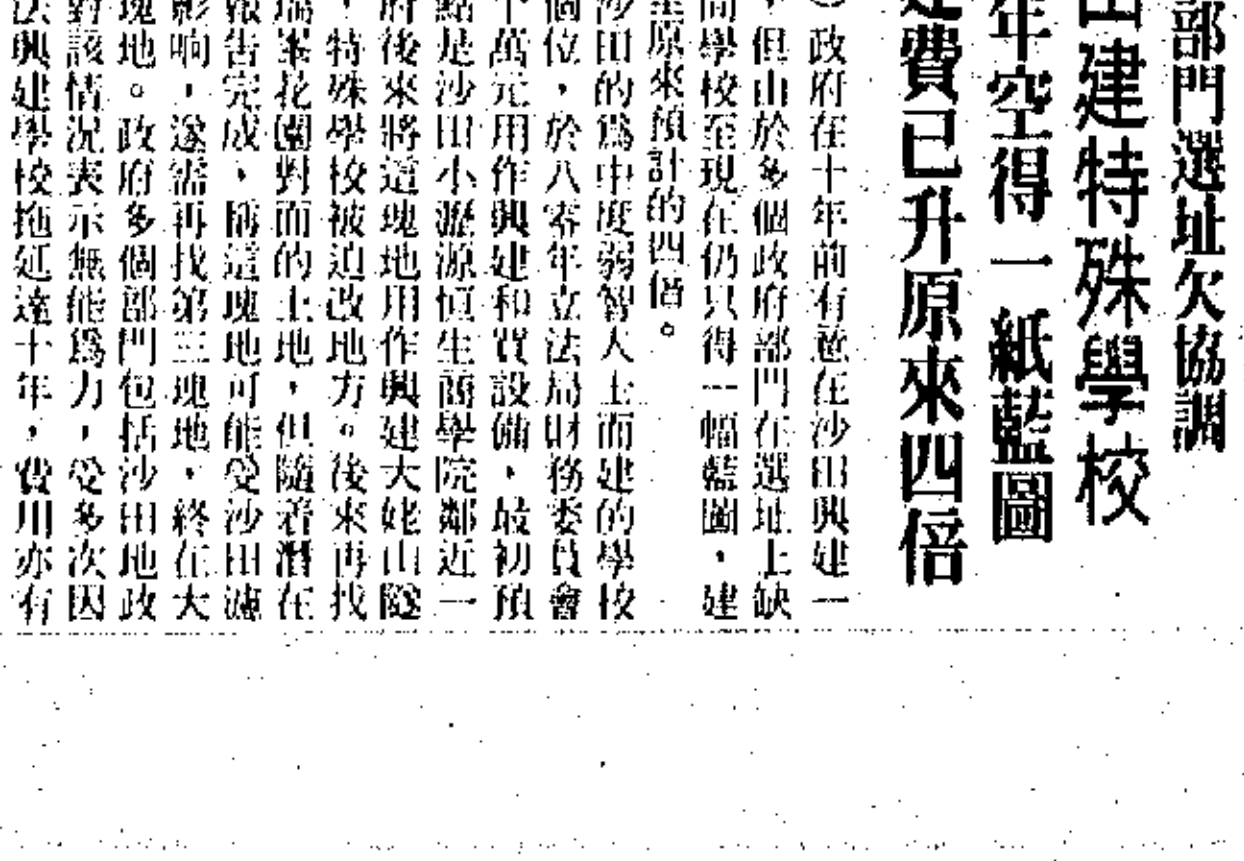 部門選址欠協調
田建特殊學校
年空得一紙藍圖
建費已升原來四倍
）政府在十年前有意在沙田興建一
，但由於多個政府部門在選址上缺
間學校至現在仍只得一幅藍圖，建
至原來預計的四倍。
沙田的為中度弱智人士而建的學校
個位，於八零年立法局財務委員會
十萬元用作興建和買設備，最初預
點是沙田小瀝源恒生商學院鄰近一
府後來將這塊地用作興建大姥山隧
，特殊學校被迫改地方。後來再找
瑞峯花園對面的土地，但隨着潛在
報告完成，稱這塊地可能受沙田濾
影响，遂需再找第三塊地，終在大
塊地。政府多個部門包括沙田地政
對該情況表示無能爲力，受多次因
法興建學校拖延達十年，費用亦有